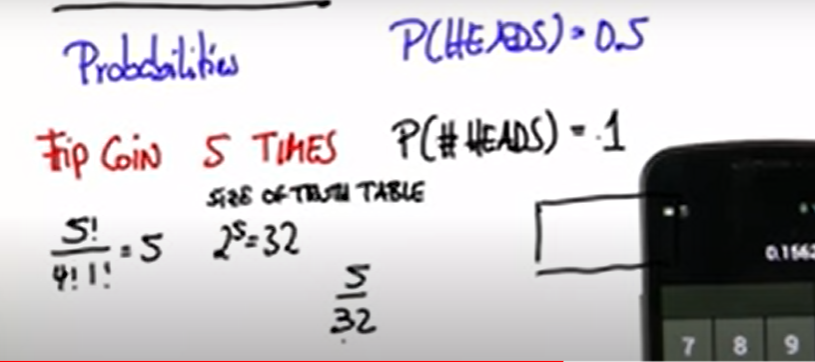 Probabilities
P(HEADS) = 0.5
Flip Coin 5 TIMES
P(# HEADS) = 1
SIZE OF TRUTH TABLE
5!
4! 1!
= 5
2^5 = 32
5
32
7 8 9